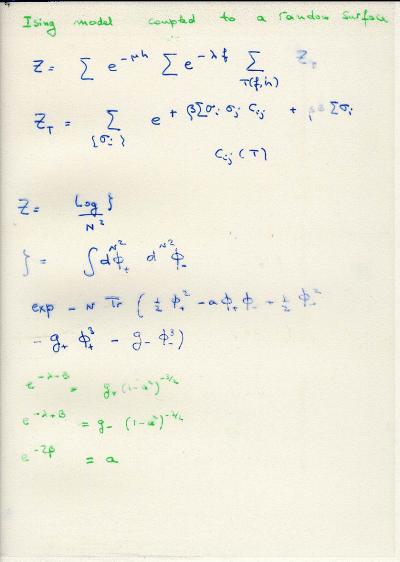 Ising model coupled to a random surface
Z = ∑ e^{-μh} ∑ e^{-λf} ∑_{T(f,h)} Z_T
Z_T = ∑_{{σ_i}} e^{+ β∑σ_i σ_j C_ij + β ∑σ_i}
C_ij (T)
Z = Log ζ / N²
ζ = ∫ d^{N²}ϕ_+ d^{N²}ϕ_-
exp - N Tr ( ½ ϕ_+² - a ϕ_+ ϕ_- + ½ ϕ_-²
- g_+ ϕ_+³ - g_- ϕ_-³ )
= g_+ (1-a²)^{-3/2}
= g_- (1-a²)
e^{-2β} = a